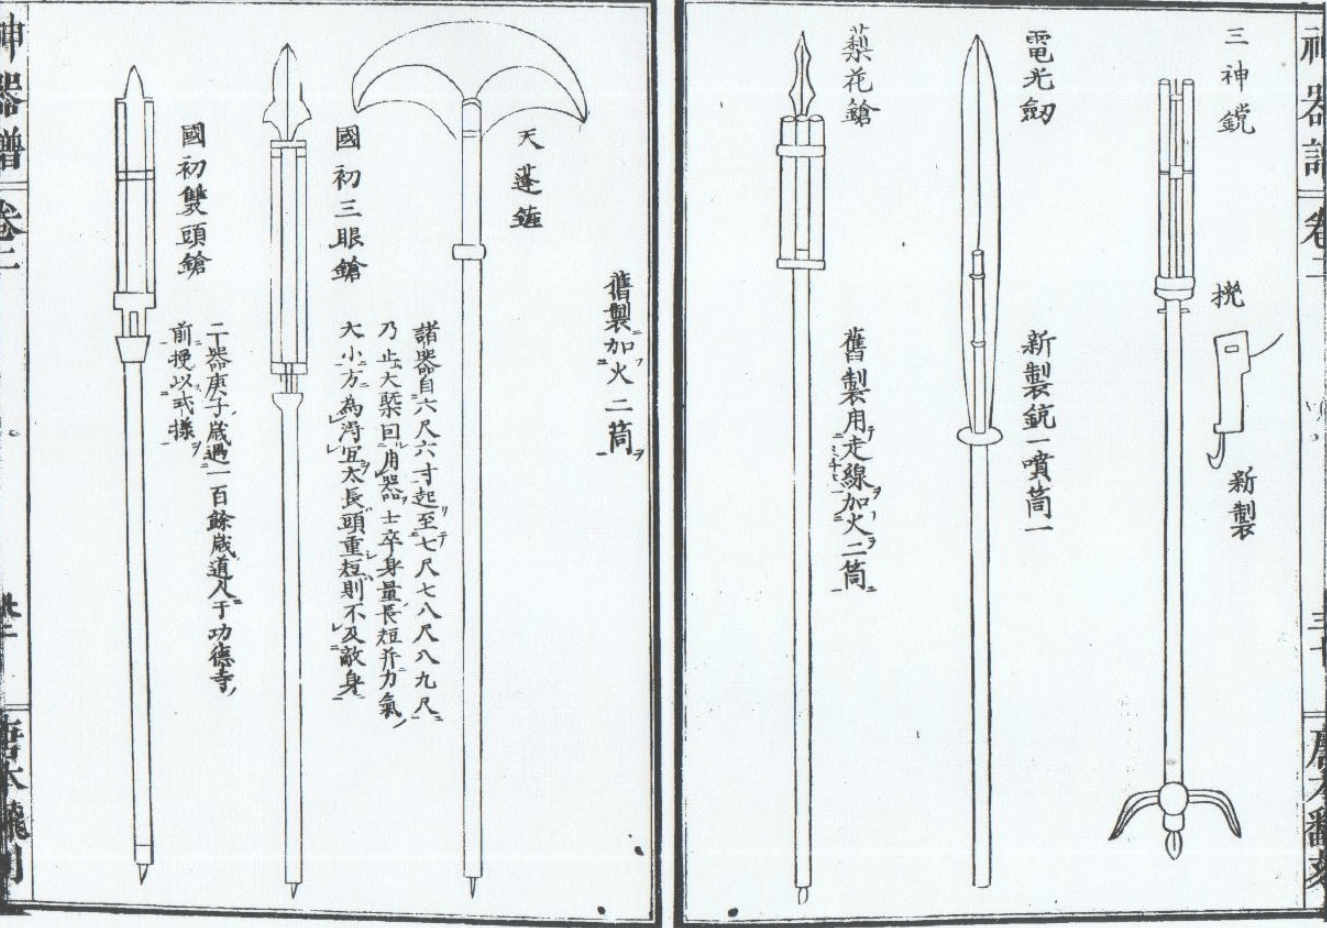 神器譜 卷二 三十七 唐本翻刻
三神鋭
挽
新製
電光劔
新製鋭一噴筒一
蔾花鎗
舊製用走線加火二筒
舊製加火二筒
天蓬鏟
諸器自六尺六寸起至七尺七八尺八九尺
乃止大槩回用器士卒身量長短并力氣
大小方為淂冝太長頭重短則不及敵身
國初三眼鎗
二器庚子嵗遇一百餘嵗道人于功德寺
前授以式樣
國初雙頭鎗
神器譜 卷二